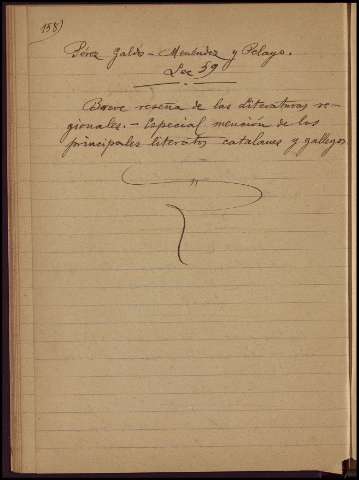 158)
Pérez Galdós - Menéndez y Pelayo.
Lec 59
Breve reseña de las literaturas re-
gionales. - Especial mención de los
principales literatos catalanes y gallegos